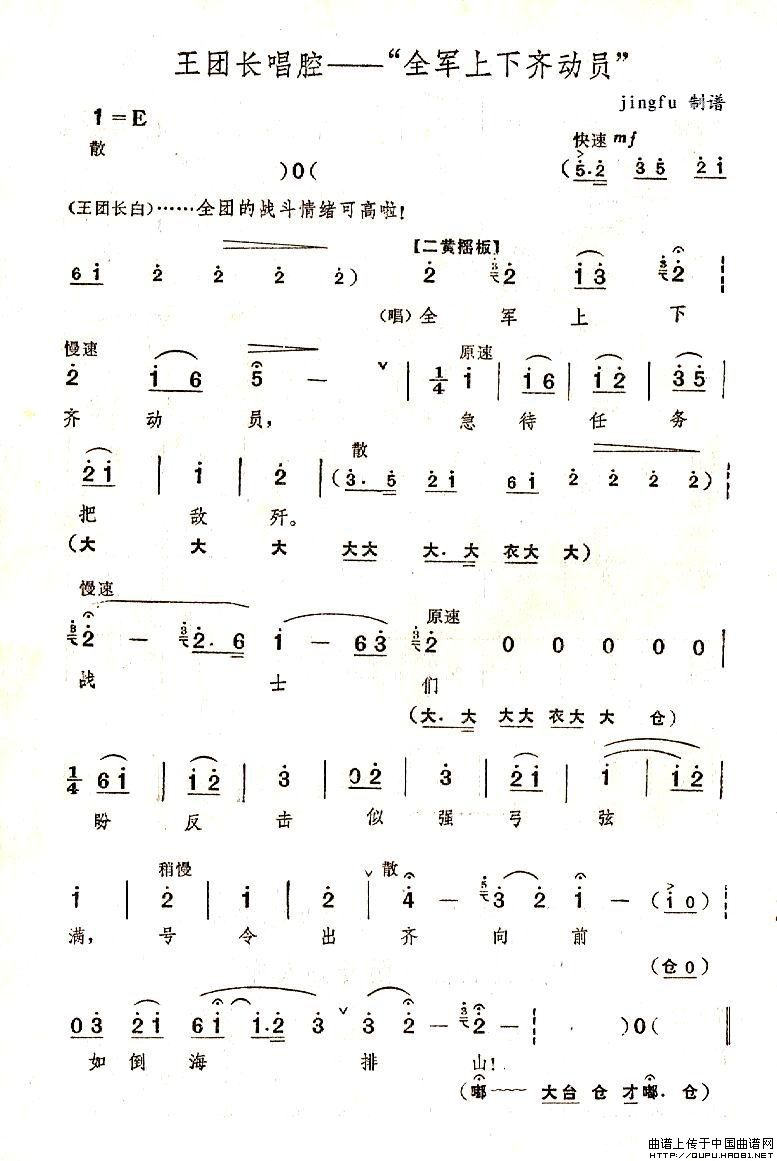 王团长唱腔——“全军上下齐动员”
jingfu 制谱
1=E
散
快速 mf
)0( (5·2 35 21
(王团长白)……全团的战斗情绪可高啦!
【二黄摇板】
61 2 2 2 2) 2 2 13 2
(唱)全 军 上 下
慢速 原速
2 16 5 — ∨ 1/4 1 | 16 | 12 | 35 |
齐 动 员, 急 待 任 务
散
21 | 1 | 2 | (3·5 21 61 2 2 2 2)
把 敌 歼。
(大 大 大 大大 大·大 衣大 大)
慢速 原速
2 — 2·6 1 — 63 2 0 0 0 0 0 |
战 士 们
(大·大 大大 衣大 大 仓)
1/4 61 | 12 | 3 | 02 | 3 | 21 | 1 | 12 |
盼 反 击 似 强 弓 弦
稍慢 ∨散
1 | 2 | 1 | 2 | 4 — 3 2 1 — (10)
满, 号 令 出 齐 向 前
(仓0)
03 21 61 1·2 3 ∨ 3 2 — 2 )0( ‖
如 倒 海 排 山!
(嘟—— 大台 仓 才嘟·仓)
曲谱上传于中国曲谱网
HTTP://QUPU.HAO81.NET